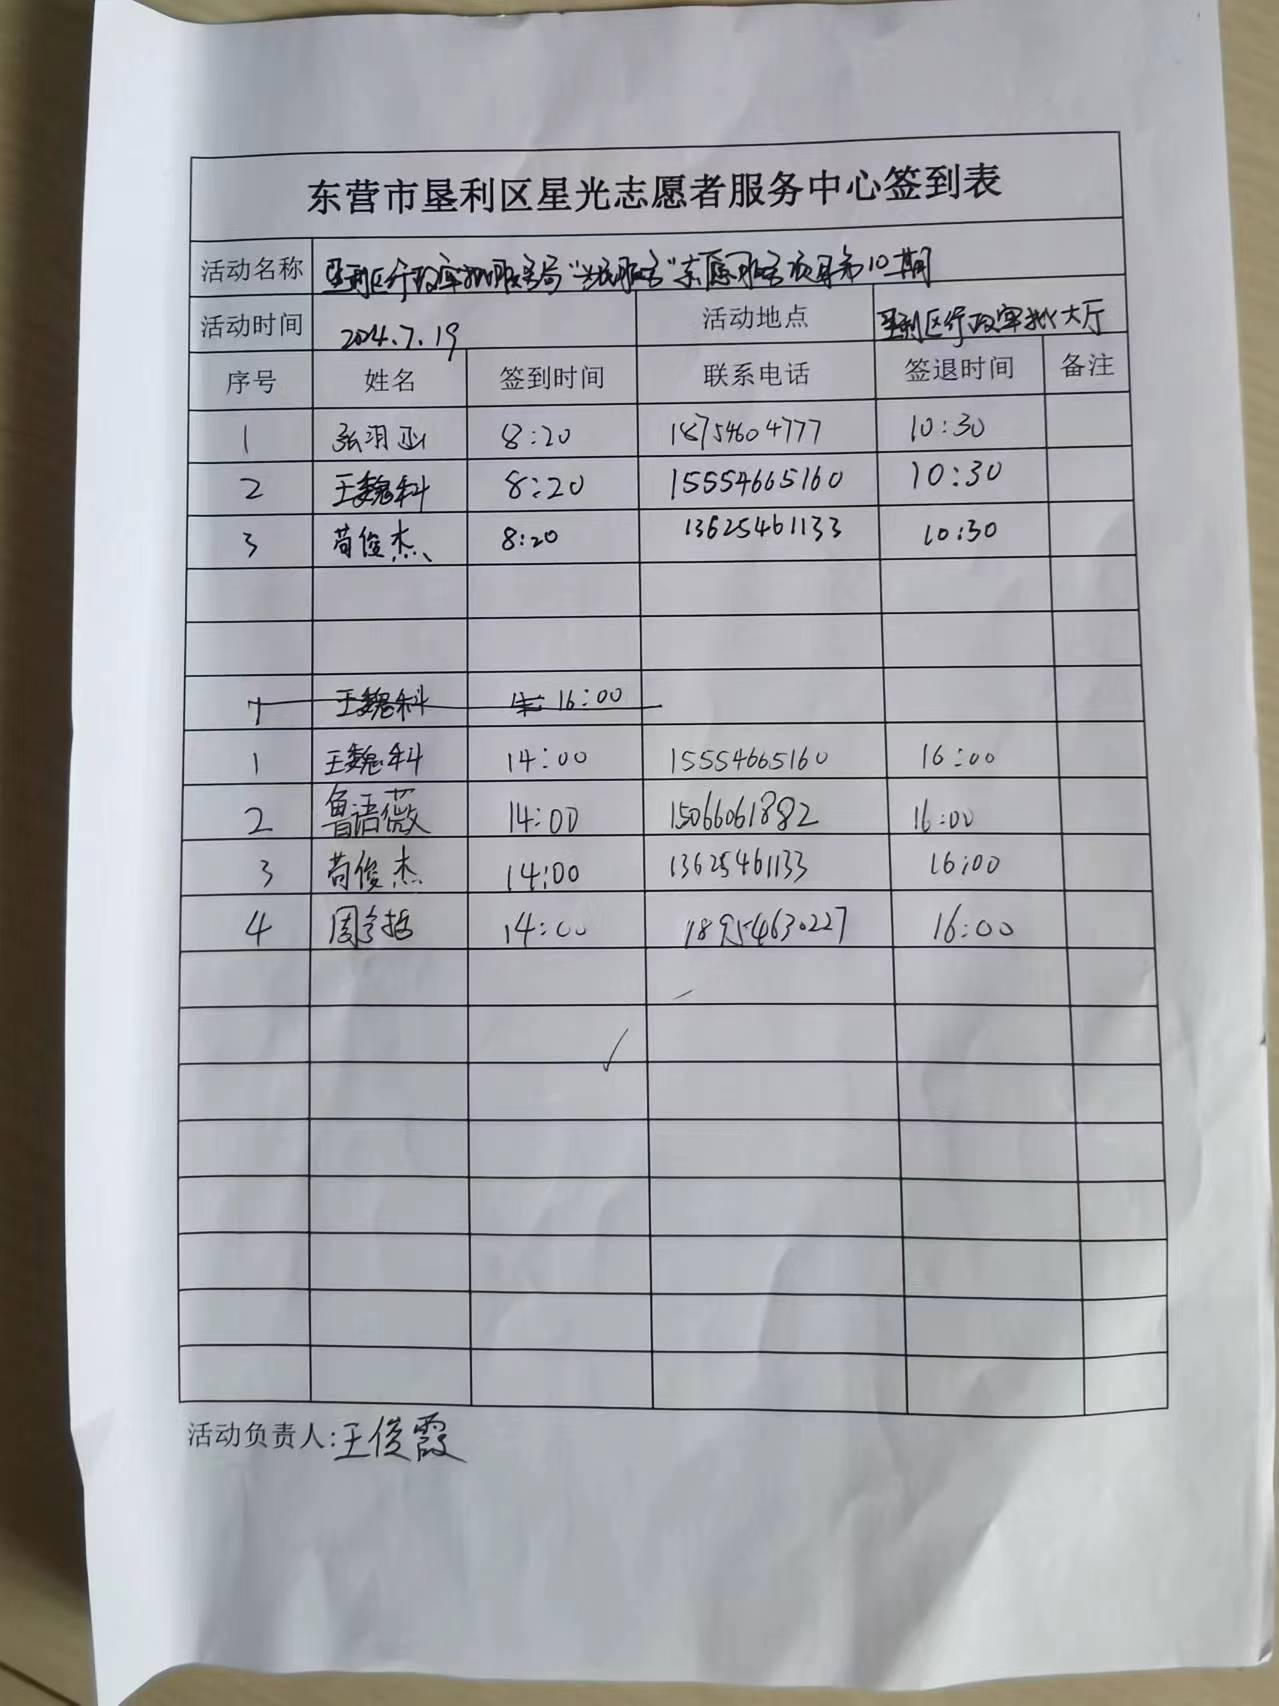 东营市垦利区星光志愿者服务中心签到表
活动名称 垦利区行政审批服务局“为民服务”志愿服务项目第10期
活动时间 2024.7.19 活动地点 垦利区行政审批大厅
序号 姓名 签到时间 联系电话 签退时间 备注
1 张羽 8:20 18754604777 10:30
2 王魏科 8:20 15554665160 10:30
3 苟俊杰 8:20 13625461133 10:30
王魏科 16:00
1 王魏科 14:00 15554665160 16:00
2 鲁语薇 14:00 15066061882 16:00
3 苟俊杰 14:00 13625461133 16:00
4 周 14:00 18954630227 16:00
活动负责人:王俊霞